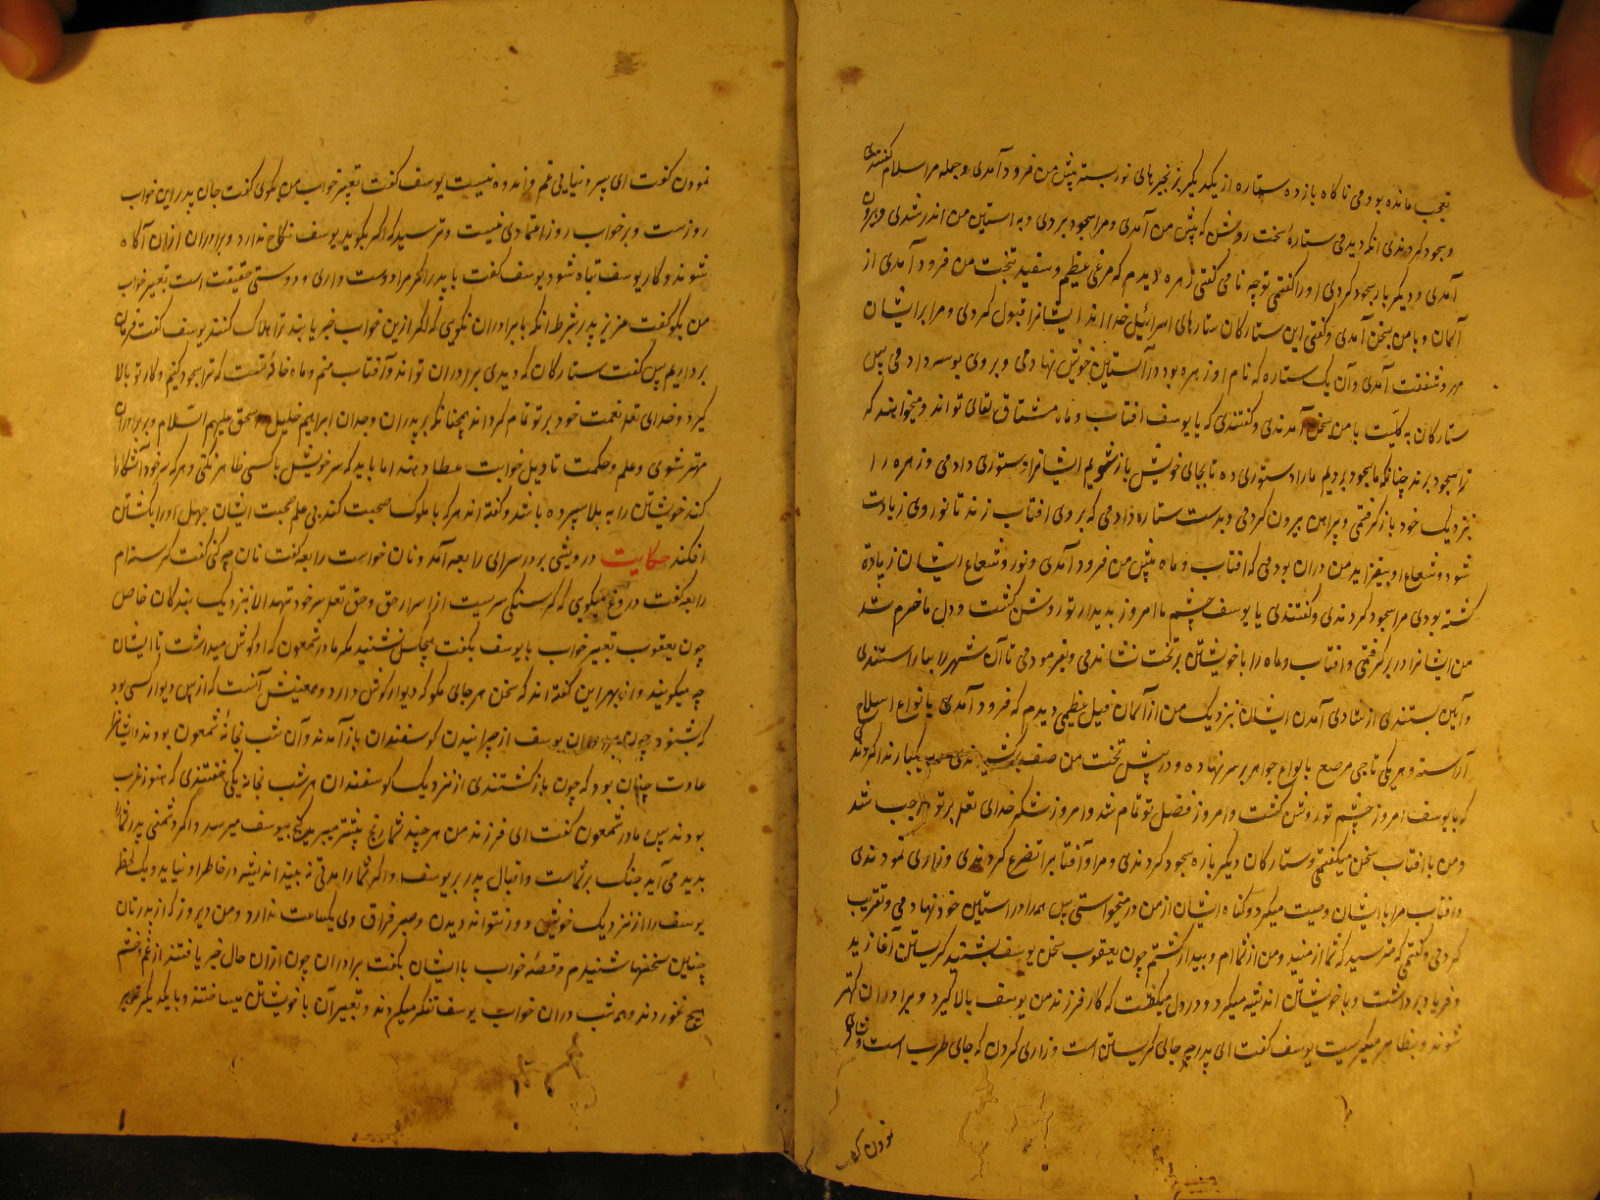 تعجب مانده بودمی ناکاه یازده ستاره از یکدیکر بزنجیرهای نور بسته پیش من فرود آمدی و جمله مرا سلام گفتندی
و سجود کردندی انکه دیدمی ستارهٔ سخت روشن که پیش من آمدی و مرا سجود بردی و به استین من اندر شدی و بیرون
آمدی و دیکر بار سجود کردی اورا کفتمی تو چه نامی کفتی زهره دیدم که مرغی عظیم و سفید بتخت من فرود آمدی از
آسمان و با من بسخن آمدی و کفتی این ستارکان ستارهای اسرائیل خدااند ایشانرا قبول کردی و مرا بر ایشان
مهر و شفقت آمدی و آن یک ستاره که نام او زهره بود در آستین خویش نهادمی و بر وی بوسه دادمی پس
ستارکان به کلیت با من بسخن آمدندی و کفتندی که یا یوسف افتاب و ماه مشتاق لقای تواند و میخواهند که
ترا سجود برند چنانکه ما سجود بردیم ما را دستوری ده تا بجای خویش باز شویم ایشانرا دستوری دادمی و زهره را
نزدیک خود باز کرفتمی و پیراهن بیرون کردمی و بدست ستاره دادمی که بروی افتاب زند تا نور وی زیادت
شود و شعاع او بیفزاید من دران بودمی که افتاب و ماه پیش من فرود آمدی و نور و شعاع ایشان زیاده
کشته بودی مرا سجود کردندی و کفتندی یا یوسف چشم ما امروز بدیدار تو روشن کشت و دل ما خرم شد
من ایشانرا در بر کرفتمی و افتاب و ماه را با خویشتن بر تخت نشاندمی و بفرمودمی تا آن شهر را بیاراستندی
و آیین بستندی از شادی آمدن ایشان بنزدیک من از آسمان خیل عظیمی دیدم که فرود آمدی بانواع اسلام
آراسته و هر یکی تاجی مرصع بانواع جواهر بر سر نهاده و در پیش تخت من صف بیکبار ندا کردند
که یا یوسف امروز چشم تو روشن کشت و امروز فضل تو تمام شد و امروز شکر خدای تعلی بر تو واجب شد
و من با افتاب سخن میکفتمی و ستارکان دیکر باره سجود کردندی و مرا و آفتابرا تضرع کردندی و زاری نمودندی
و افتاب مرا با ایشان وصیت میکرد و کناه ایشان از من درمیخواستی پس همه را در استین خود نهادمی و تقریب
کردمی و کفتمی که مترسید که شما از منید و من از شماام و بیدار کشتم چون یعقوب سخن یوسف بشنید کریستن آغازید
و فریاد برداشت و با خویشتن اندیشه میکرد و در دل میکفت که کار فرزند من یوسف بالا کیرد و برادران کهتر
شوند و بظاهر میکریست یوسف کفت ای پدر چه جای کریستن است و زاری کردن که جای طرب است
نمودن کفت
نمودن کفت ای پسر دنیا بی غم و اندوه نیست یوسف کفت تعبیر خواب من بکوی کفت جان پدر این خواب
روزست و بر خواب روز اعتمادی نیست و ترسید که اکر بکوید یوسف نکاه ندارد و برادران ازان آکاه
شوند و کار یوسف تباه شود یوسف کفت یا پدر اکر مرا دوست داری و دوستی حقیقت است تعبیر خواب
من بکو کفت عزیز پدر بشرط انکه با برادران نکوی که اکر ازین خواب خبر یابند ترا هلاک کنند یوسف کفت فرمان
برداریم پس کفت ستارکان که دیدی برادران تواند و آفتاب منم و ماه خالهٔ تست که ترا سجود کنیم و کار تو بالا
کیرد و خدای تعلی نعمت خود بر تو تمام کرداند همچنانکه بر پدران و جدان ابراهیم خلیل و اسحق علیهم السلام و بر برادران
مهتر شوی و علم و حکمت تاویل خوابت عطا دهد اما باید که سر خویش با کسی ظاهر نکنی و هر که سر خود آشکارا
کند خویشتن را به بلا سپرده باشد و کفته اند هر که با ملوک صحبت کند بی علم صحبت ایشان جهل او را بکشتن
افکند حکایت درویشی بر در سرای رابعه آمد و نان خواست رابعه کفت نان چه کنی کفت کرسنه ام
رابعه کفت دروغ میکویی که کرسنکی سریست از اسرار حق و حق تعلی سر خود ننهد الا بنزدیک بندکان خاص
چون یعقوب تعبیر خواب با یوسف بکفت هیچکس نشنید مکر مادر شمعون که او کوش میداشت تا ایشان
چه میکویند و از بهر این کفته اند که سخن هر جای مکو که دیوار کوش دارد و معنیش آنست که از پس دیوار کسی بود
که بشنود چون برادران یوسف از چرانیدن کوسفندان باز آمدند و آن شب بخانهٔ شمعون بودند و ایشانرا
عادت چنان بود که چون باز کشتندی از نزدیک کوسفندان هر شب بخانهٔ یکی خفتندی که هنوز عزب
بودند پس مادر شمعون کفت ای فرزند من هر چند شما رنج بیشتر میبرید کنج بیوسف میرسد و اکر دشمنی پدر شما را
پدید می آید جنک بر شماست و اقبال پدر بر یوسف و اکر شما را مدتی نه بیند اندیشه در خاطر او نیاید و یک لحظه
یوسف را از نزدیک خویش دور نتواند دیدن و صبر فراق وی یکساعت ندارد و من دیروز که از پدرتان
چنین سخنها شنیدم و قصهٔ خواب با ایشان بکفت برادران چون ازان حال خبر یافتند از غم و خشم
هیچ نخوردند و همه شب دران خواب یوسف تفکر میکردند و تعبیر آن با خویشتن میساختند و با یکدیکر